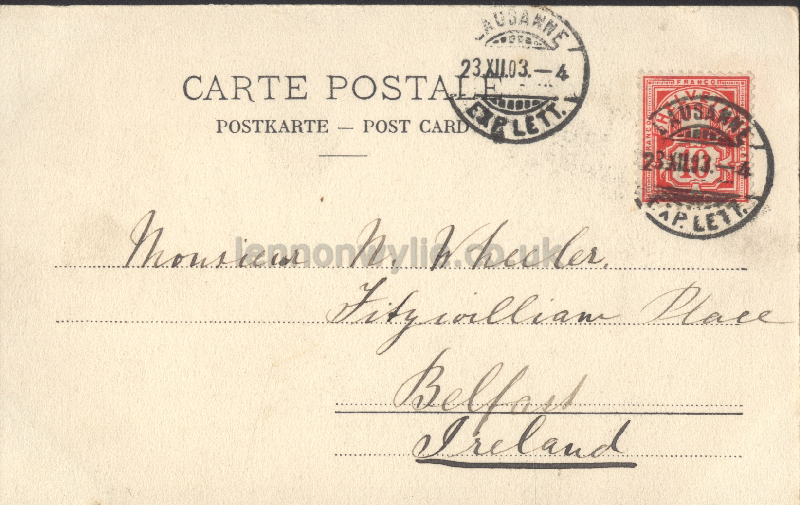 LAUSANNE
23.XII.03.–4
EXP. LETT.
CARTE POSTALE
POSTKARTE — POST CARD
FRANCO
HELVETIA
FRANCO
10
LAUSANNE
23.XII.03.–4
EXP. LETT.
lennonwylie.co.uk
Monsieur W. Wheeler.
Fitzwilliam Place
Belfast
Ireland